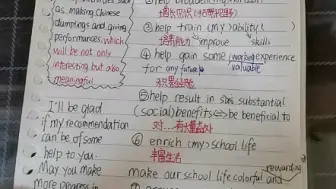 as making Chinese
dumplings and giving
performances, which
will be not only
interesting but also
meaningful
I'll be glad
if my recommendation
can be of some
help to you.
May you make
more progress in
② help broadening
③ help train (my) ability!
培养能力 improve skills
④ help gain some (working) experience
valuable
for any future
积累经验
⑤ help result in substantial
(social) benefits ⇔ be beneficial to
对…有益处
⑥ enrich (my) school life
丰富生活
rewarding
make our school life colorful and